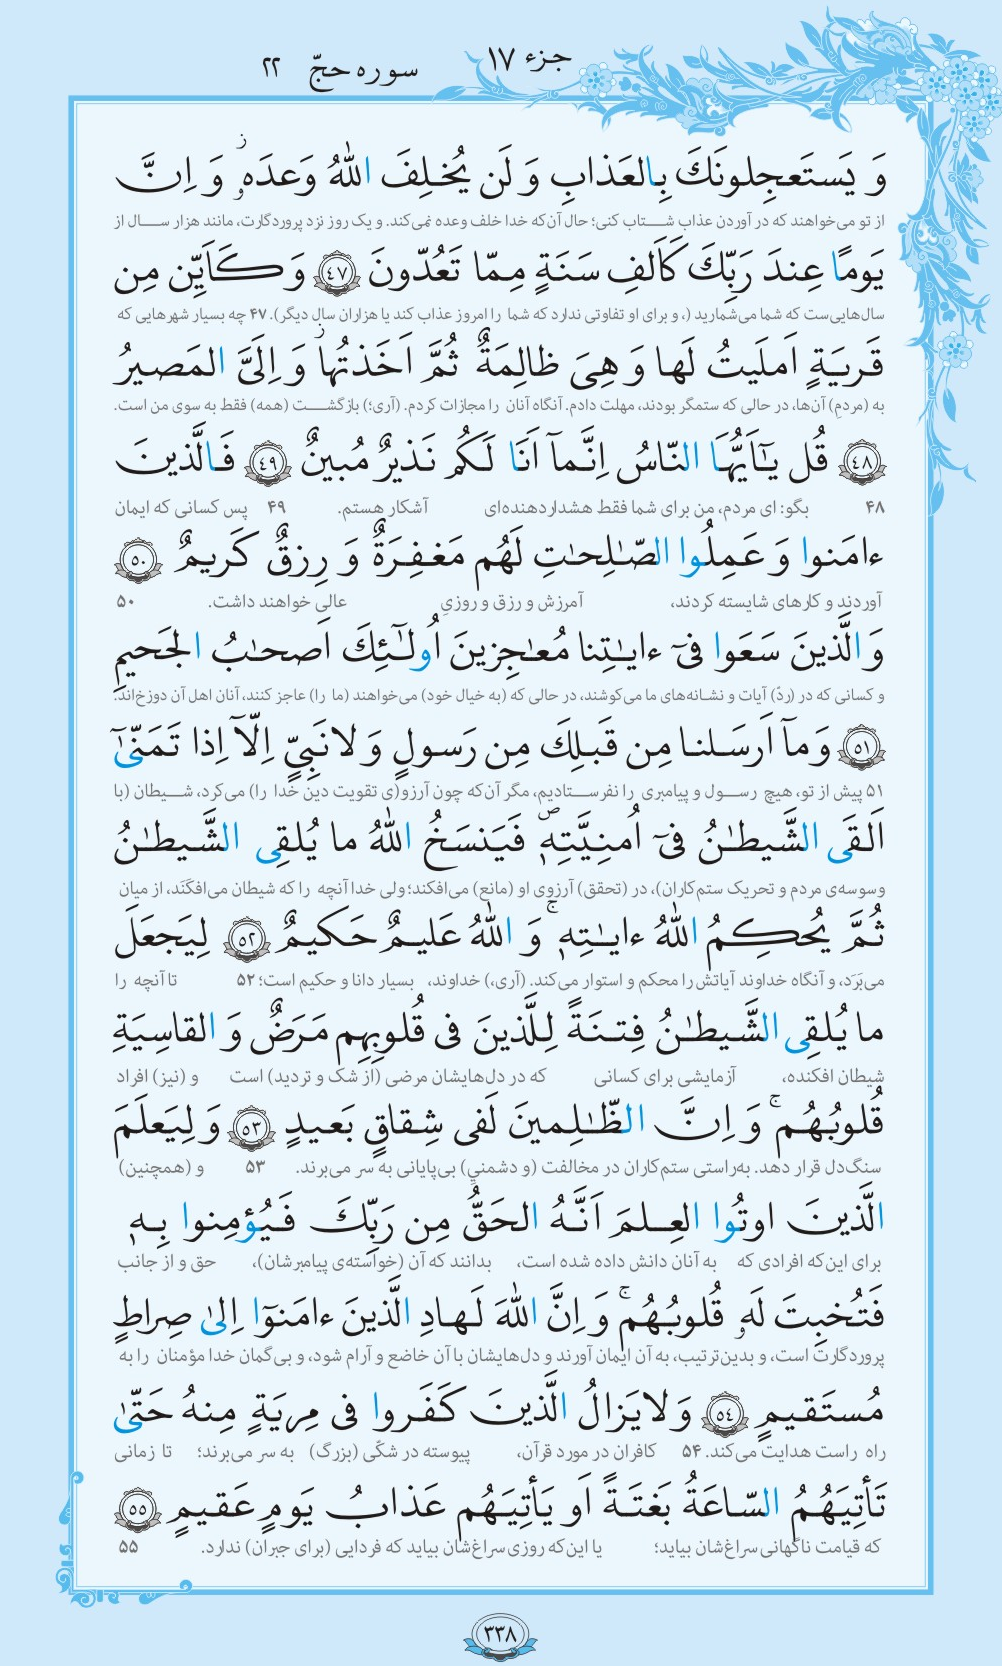 جزء ۱۷
سوره حجّ ۲۲
وَ یَستَعجِلونَکَ بِالعَذابِ وَ لَن یُخـلِفَ اللّٰهُ وَعدَهۥ ۚ وَ اِنَّ
از تو می‌خواهند که در آوردن عذاب شـــتاب کنی؛ حال آن‌که خدا خلف وعده نمی‌کند. و یک روز نزد پروردگارت، مانند هزار ســـال از
یَومًا عِندَ رَبِّکَ کَاَلفِ سَنَةٍ مِمّا تَعُدّونَ ﴿٤٧﴾ وَ کَاَیِّن مِن
سال‌هایی‌ست که شما می‌شمارید (، و برای او تفاوتی ندارد که شما را امروز عذاب کند یا هزاران سال دیگر). ۴۷ چه بسیار شهرهایی که
قَریَةٍ اَملَیتُ لَها وَ هِیَ ظالِمَةٌ ثُمَّ اَخَذتُها وَ اِلَیَّ المَصیرُ
به (مردمِ) آن‌ها، در حالی که ستمگر بودند، مهلت دادم. آنگاه آنان را مجازات کردم. (آری؛) بازگشـــت (همه) فقط به سوی من است.
﴿٤٨﴾ قُل یـٰۤاَیُّهَا النّاسُ اِنَّمآ اَنَا لَکُم نَذیرٌ مُبینٌ ﴿٤٩﴾ فَالَّذینَ
۴۸ بگو: ای مردم، من برای شما فقط هشداردهنده‌ای آشکار هستم. ۴۹ پس کسانی که ایمان
ءامَنوا وَ عَمِلُوا الصّـٰلِحـٰتِ لَهُم مَغفِرَةٌ وَ رِزقٌ کَریمٌ ﴿٥٠﴾
آوردند و کارهای شایسته کردند، آمرزش و رزق و روزیِ عالی خواهند داشت. ۵۰
وَالَّذینَ سَعَوا فیۤ ءایـٰتِنا مُعـٰجِزینَ اُولـٰۤئِکَ اَصحـٰبُ الجَحیمِ
و کسانی که در (ردّ) آیات و نشـانه‌های ما می‌کوشند، در حالی که (به خیال خود) می‌خواهند (ما را) عاجز کنند، آنان اهل آن دوزخ‌اند.
﴿٥١﴾ وَ مآ اَرسَلنا مِن قَبلِکَ مِن رَسولٍ وَ لا نَبِیٍّ اِلّآ اِذا تَمَنّیٰۤ
۵۱ پیش از تو، هیچ رســـول و پیامبری را نفرســـتادیم، مگر آن‌که چون آرزو(ی تقویت دین خدا را) می‌کرد، شـــیطان (با
اَلقَی الشَّیطـٰنُ فیۤ اُمنِیَّتِهٖ ۖ فَیَنسَخُ اللّٰهُ ما یُلقِی الشَّیطـٰنُ
وسوسه‌ی مردم و تحریک ستم‌کاران)، در (تحقق) آرزوی او (مانع) می‌افکند؛ ولی خدا آنچه را که شیطان می‌افکَنَد، از میان
ثُمَّ یُحکِمُ اللّٰهُ ءایـٰتِهٖ ۚ وَ اللّٰهُ عَلیمٌ حَکیمٌ ﴿٥٢﴾ لِیَجعَلَ
می‌بَرَد، و آنگاه خداوند آیاتش را محکم و استوار می‌کند. (آری،) خداوند، بسیار دانا و حکیم است؛ ۵۲ تا آنچه را
ما یُلقِی الشَّیطـٰنُ فِتنَةً لِلَّذینَ فی قُلوبِهِم مَرَضٌ وَ القاسِیَةِ
شیطان افکنده، آزمایشی برای کسانی که در دل‌هایشان مرضی (از شک و تردید) است و (نیز) افراد
قُلوبُهُم ۚ وَ اِنَّ الظّـٰلِمینَ لَفی شِقاقٍ بَعیدٍ ﴿٥٣﴾ وَ لِیَعلَمَ
سنگ‌دل قرار دهد. به‌راستی ستم‌کاران در مخالفت (و دشمنیِ) بی‌پایانی به سر می‌برند. ۵۳ و (همچنین)
الَّذینَ اوتُوا العِلمَ اَنَّهُ الحَقُّ مِن رَبِّکَ فَیُؤمِنوا بِهٖ
برای این‌که افرادی که به آنان دانش داده شده است، بدانند که آن (خواسته‌ی پیامبرشان)، حق و از جانب
فَتُخبِتَ لَهۥ قُلوبُهُم ۚ وَ اِنَّ اللّٰهَ لَـهـادِ الَّذینَ ءامَنوۤا اِلیٰ صِراطٍ
پروردگارت است، و بدین‌ترتیب، به آن ایمان آورند و دل‌هایشان با آن خاضع و آرام شود، و بی‌گمان خدا مؤمنان را به
مُستَقیمٍ ﴿٥٤﴾ وَ لا یَزالُ الَّذینَ کَفَروا فی مِریَةٍ مِنهُ حَتّیٰ
راه راست هدایت می‌کند. ۵۴ کافران در مورد قرآن، پیوسته در شکّی (بزرگ) به سر می‌برند؛ تا زمانی
تَأتِیَهُمُ السّاعَةُ بَغتَةً اَو یَأتِیَهُم عَذابُ یَومٍ عَقیمٍ ﴿٥٥﴾
که قیامت ناگهانی سراغ‌شان بیاید؛ یا این‌که روزی سراغ‌شان بیاید که فردایی (برای جبران) ندارد. ۵۵
۳۳۸